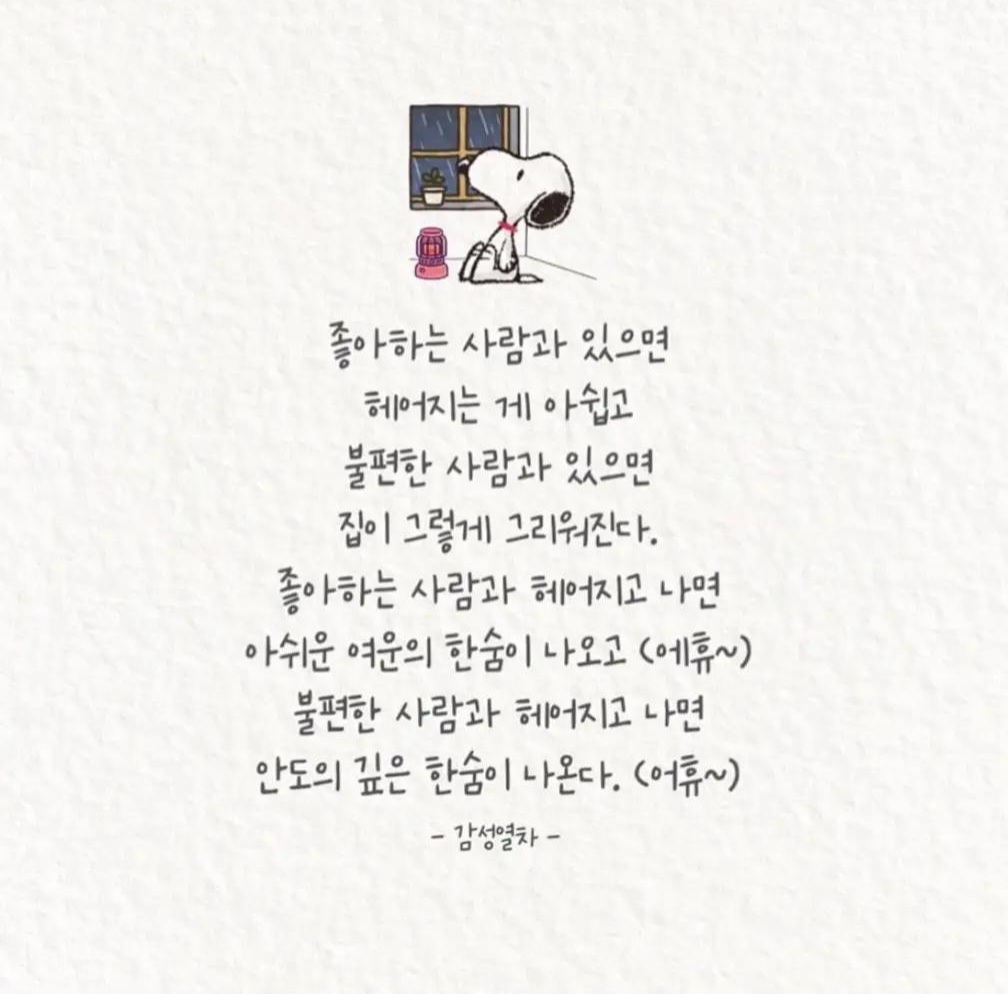 좋아하는 사람과 있으면
헤어지는 게 아쉽고
불편한 사람과 있으면
집이 그렇게 그리워진다.
좋아하는 사람과 헤어지고 나면
아쉬운 여운의 한숨이 나오고 (에휴~)
불편한 사람과 헤어지고 나면
안도의 깊은 한숨이 나온다. (어휴~)
- 감성열차 -